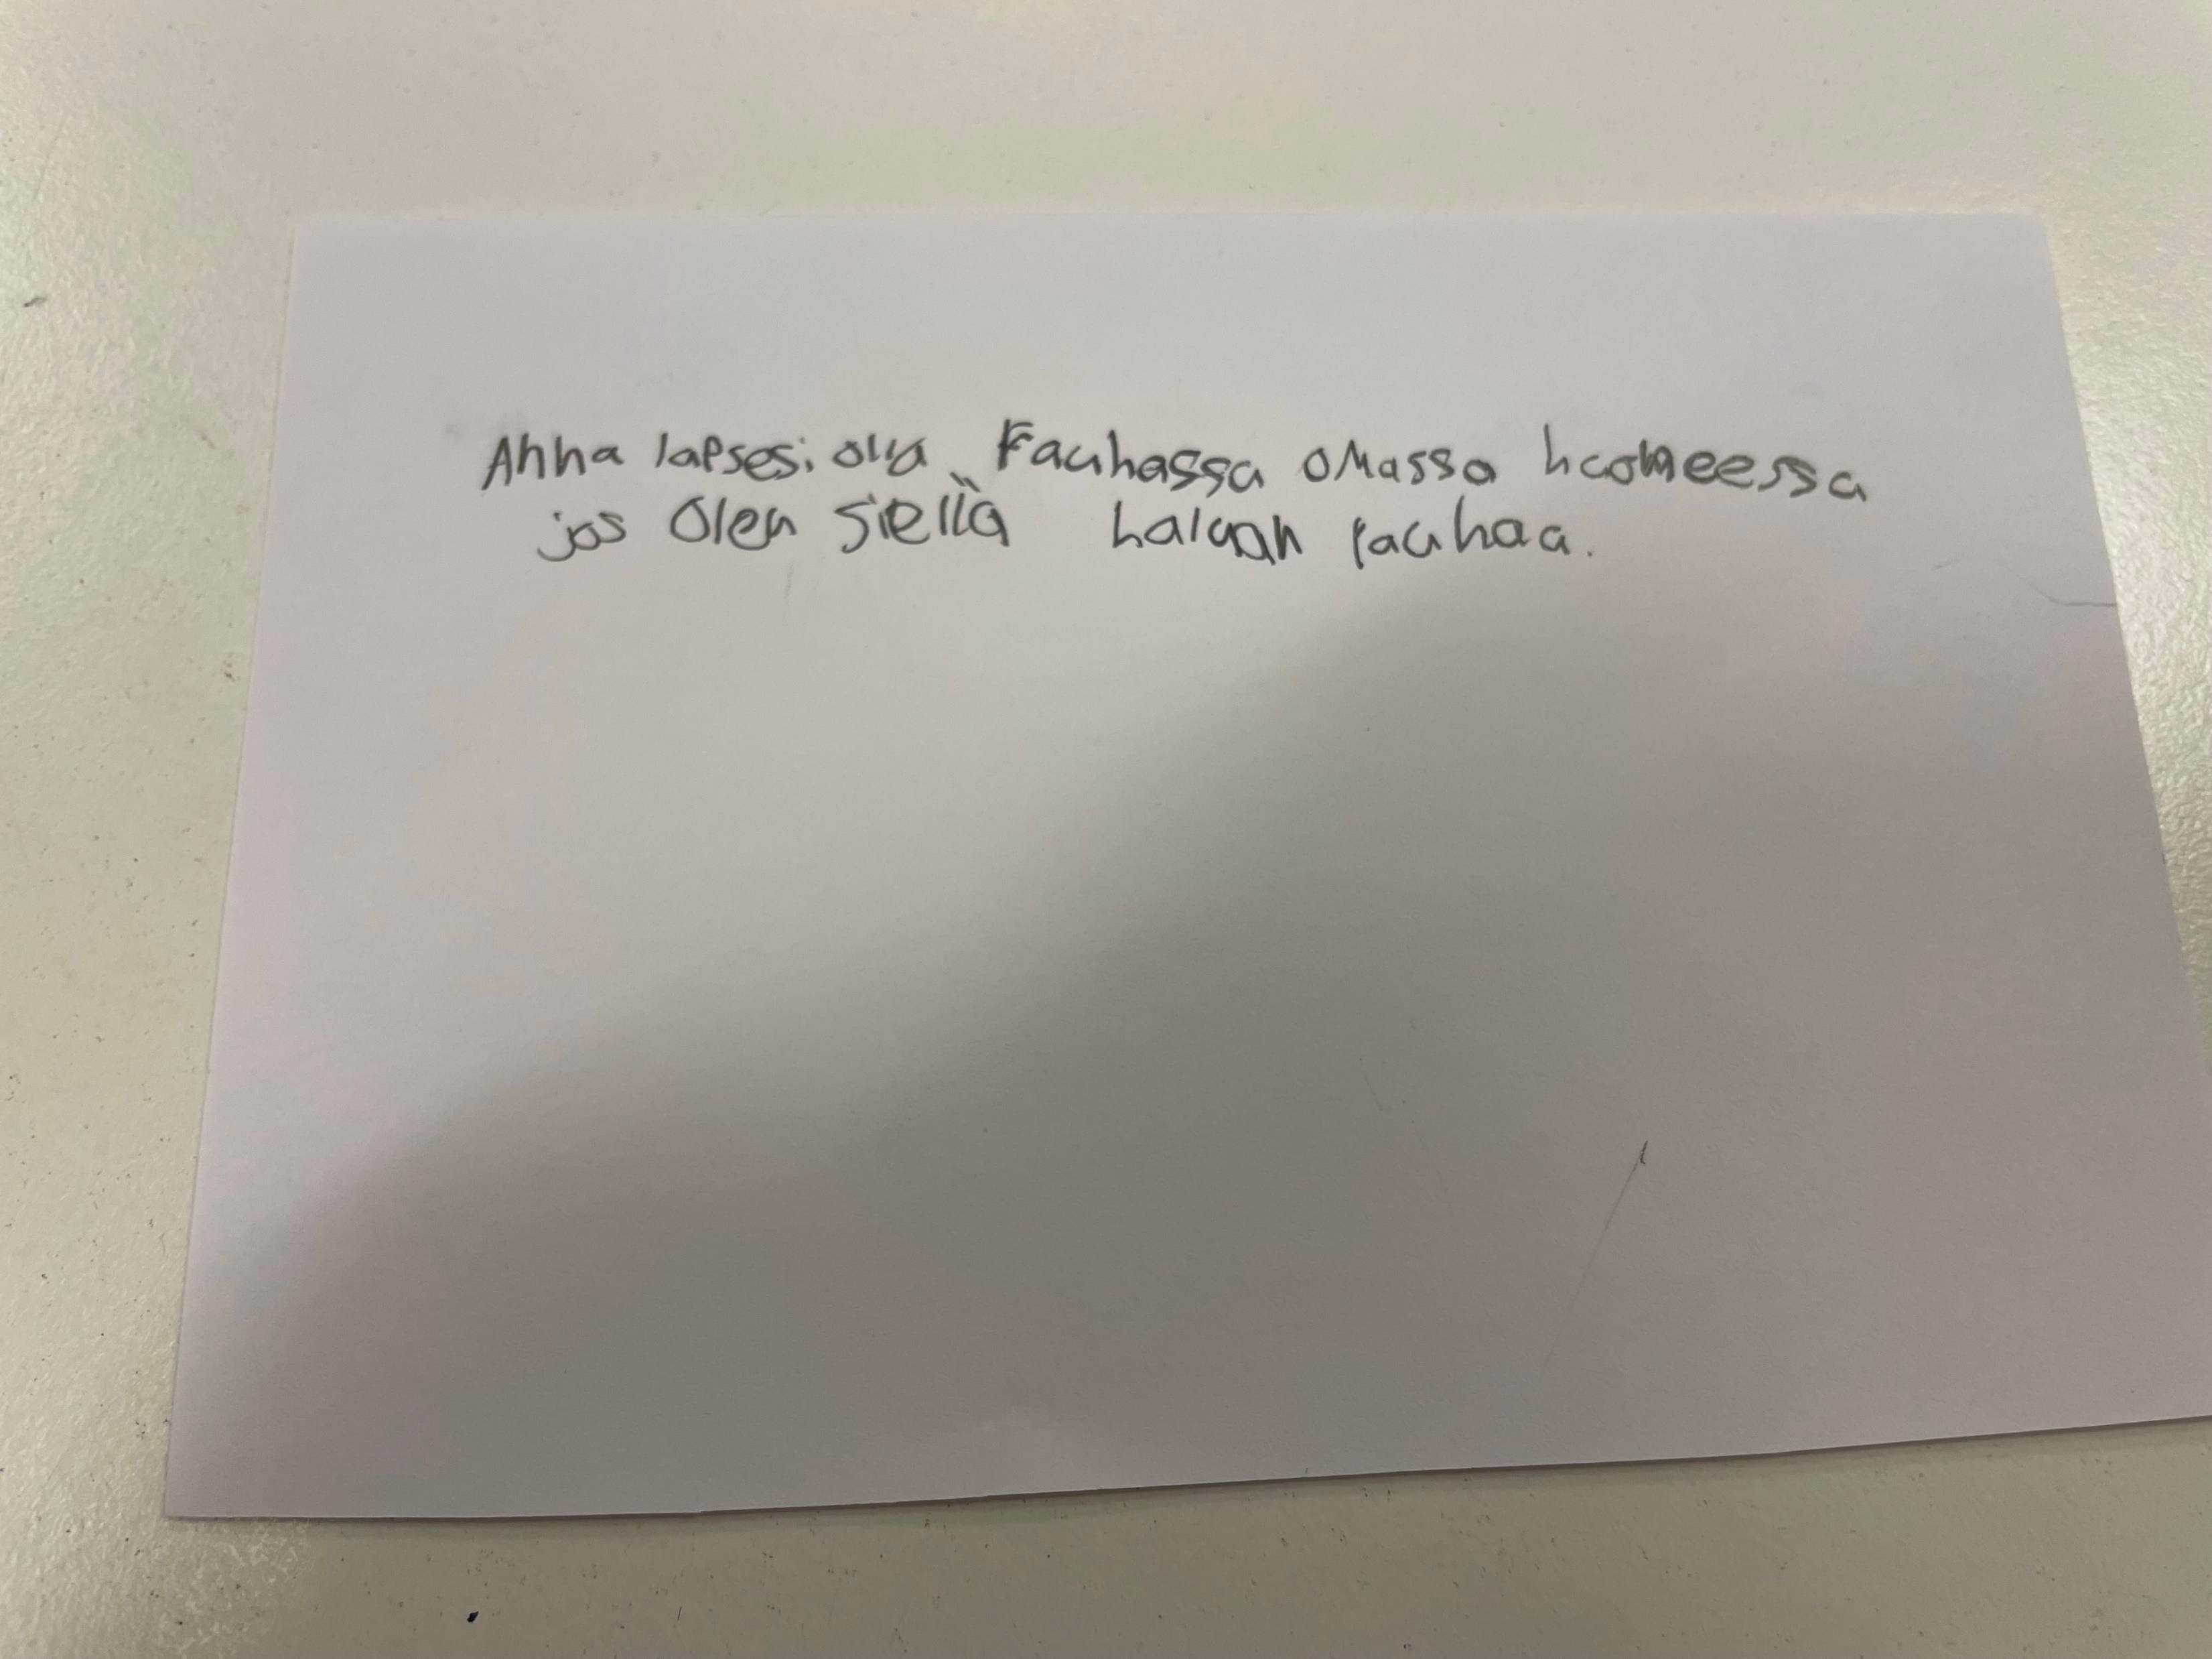 Anna lapsesi olla rauhassa omassa huoneessa
jos olen siellä haluan rauhaa.